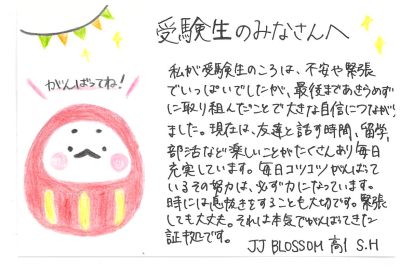 受験生のみなさんへ
がんばってね！
私が受験生のころは、不安や緊張
でいっぱいでしたが、最後まであきらめず
に取り組んだことで大きな自信につながり
ました。現在は、友達と話す時間、留学、
部活など楽しいことがたくさんあり毎日
充実しています。毎日コツコツがんばって
いるその努力は、必ず力になっています。
時には息抜きをすることも大切です。緊張
しても大丈夫。それは本気でがんばってきた
証拠です。
JJ BLOSSOM 高1 S.H